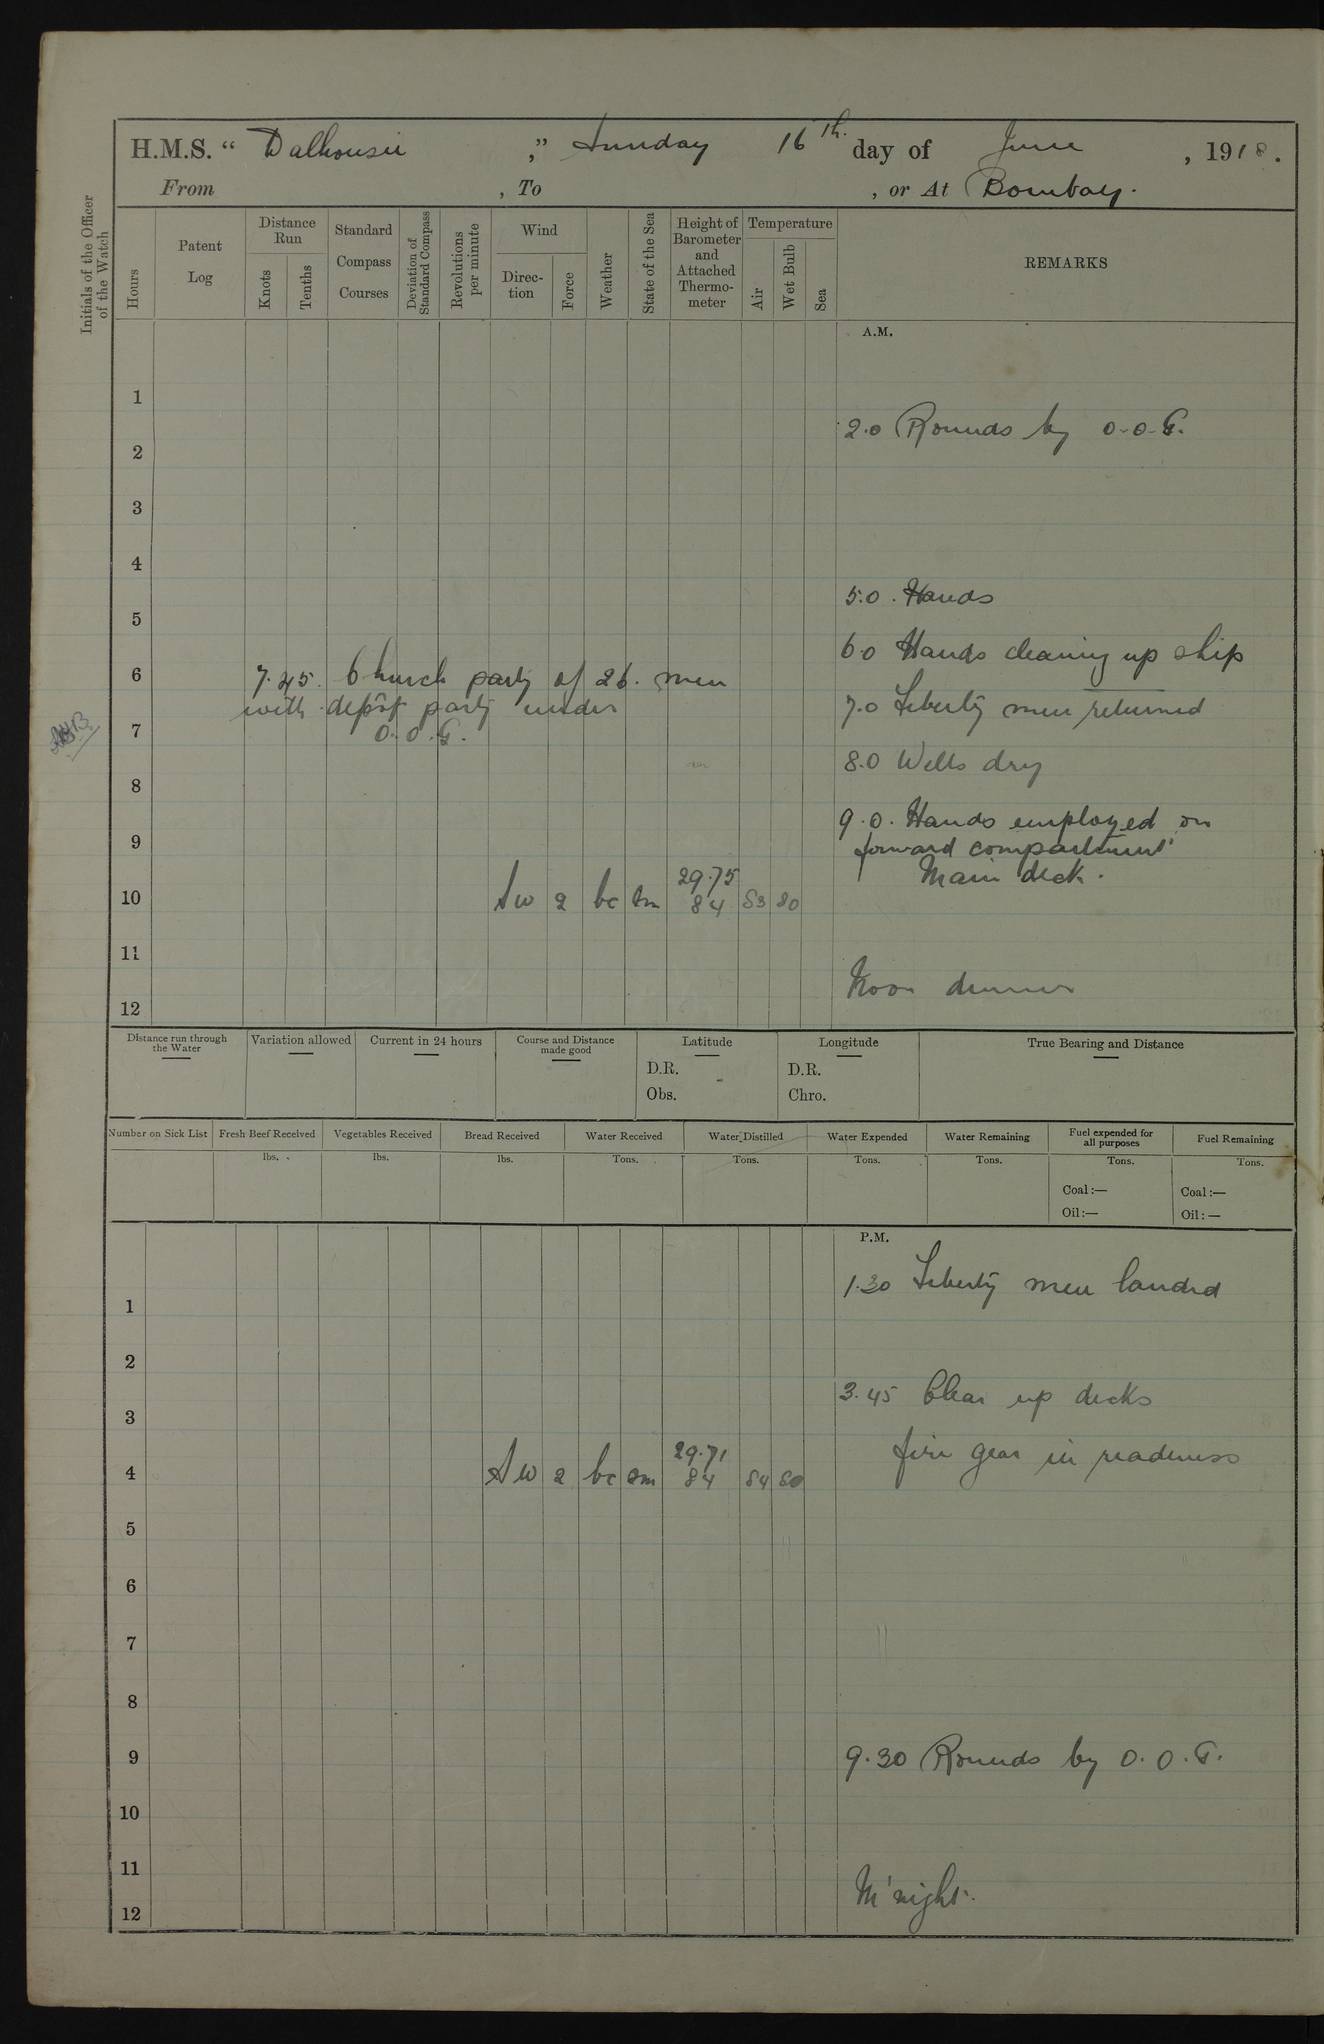 H.M.S. “ Dalhousie ,” Sunday 16th. day of June , 1918.
From , To , or At Bombay.
Initials of the Officer
of the Watch
Hours
Patent
Log
Distance
Run
Knots
Tenths
Standard
Compass
Courses
Deviation of
Standard Compass
Revolutions
per minute
Wind
Direc-
tion
Force
Weather
State of the Sea
Height of
Barometer
and
Attached
Thermo-
meter
Temperature
Air
Wet Bulb
Sea
REMARKS
A.M.
1
2.0 Rounds by O.O.G.
2
3
4
5.0. Hands
5
6.0 Hands cleaning up ship
6
7.45. Church party of 26. men
with depôt party under
O.O.G.
7.0 Liberty men returned
7
8.0 Wells dry
8
9.0. Hands employed on
9
forward compartment
Main deck.
10 SW 2 bc sm 29.75 84 83 80
11
Noon dinner
12
Distance run through
the Water
Variation allowed
Current in 24 hours
Course and Distance
made good
Latitude
D.R.
Obs.
Longitude
D.R.
Chro.
True Bearing and Distance
Number on Sick List
Fresh Beef Received
lbs.
Vegetables Received
lbs.
Bread Received
lbs.
Water Received
Tons.
Water Distilled
Tons.
Water Expended
Tons.
Water Remaining
Tons.
Fuel expended for
all purposes
Tons.
Coal :—
Oil :—
Fuel Remaining
Tons.
Coal :—
Oil : —
P.M.
1.30 Liberty men landed
1
2
3.45 Clear up decks
3
fire gear in readiness
4 SW 2 bc sm 29.71 84 84 80
5
6
7
8
9 9.30 Rounds by O.O.G.
10
11
M'night.
12